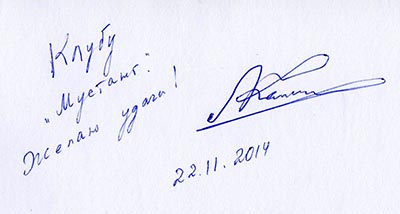 Клубу
"Мустанг".
Желаю удачи!
22.11.2014